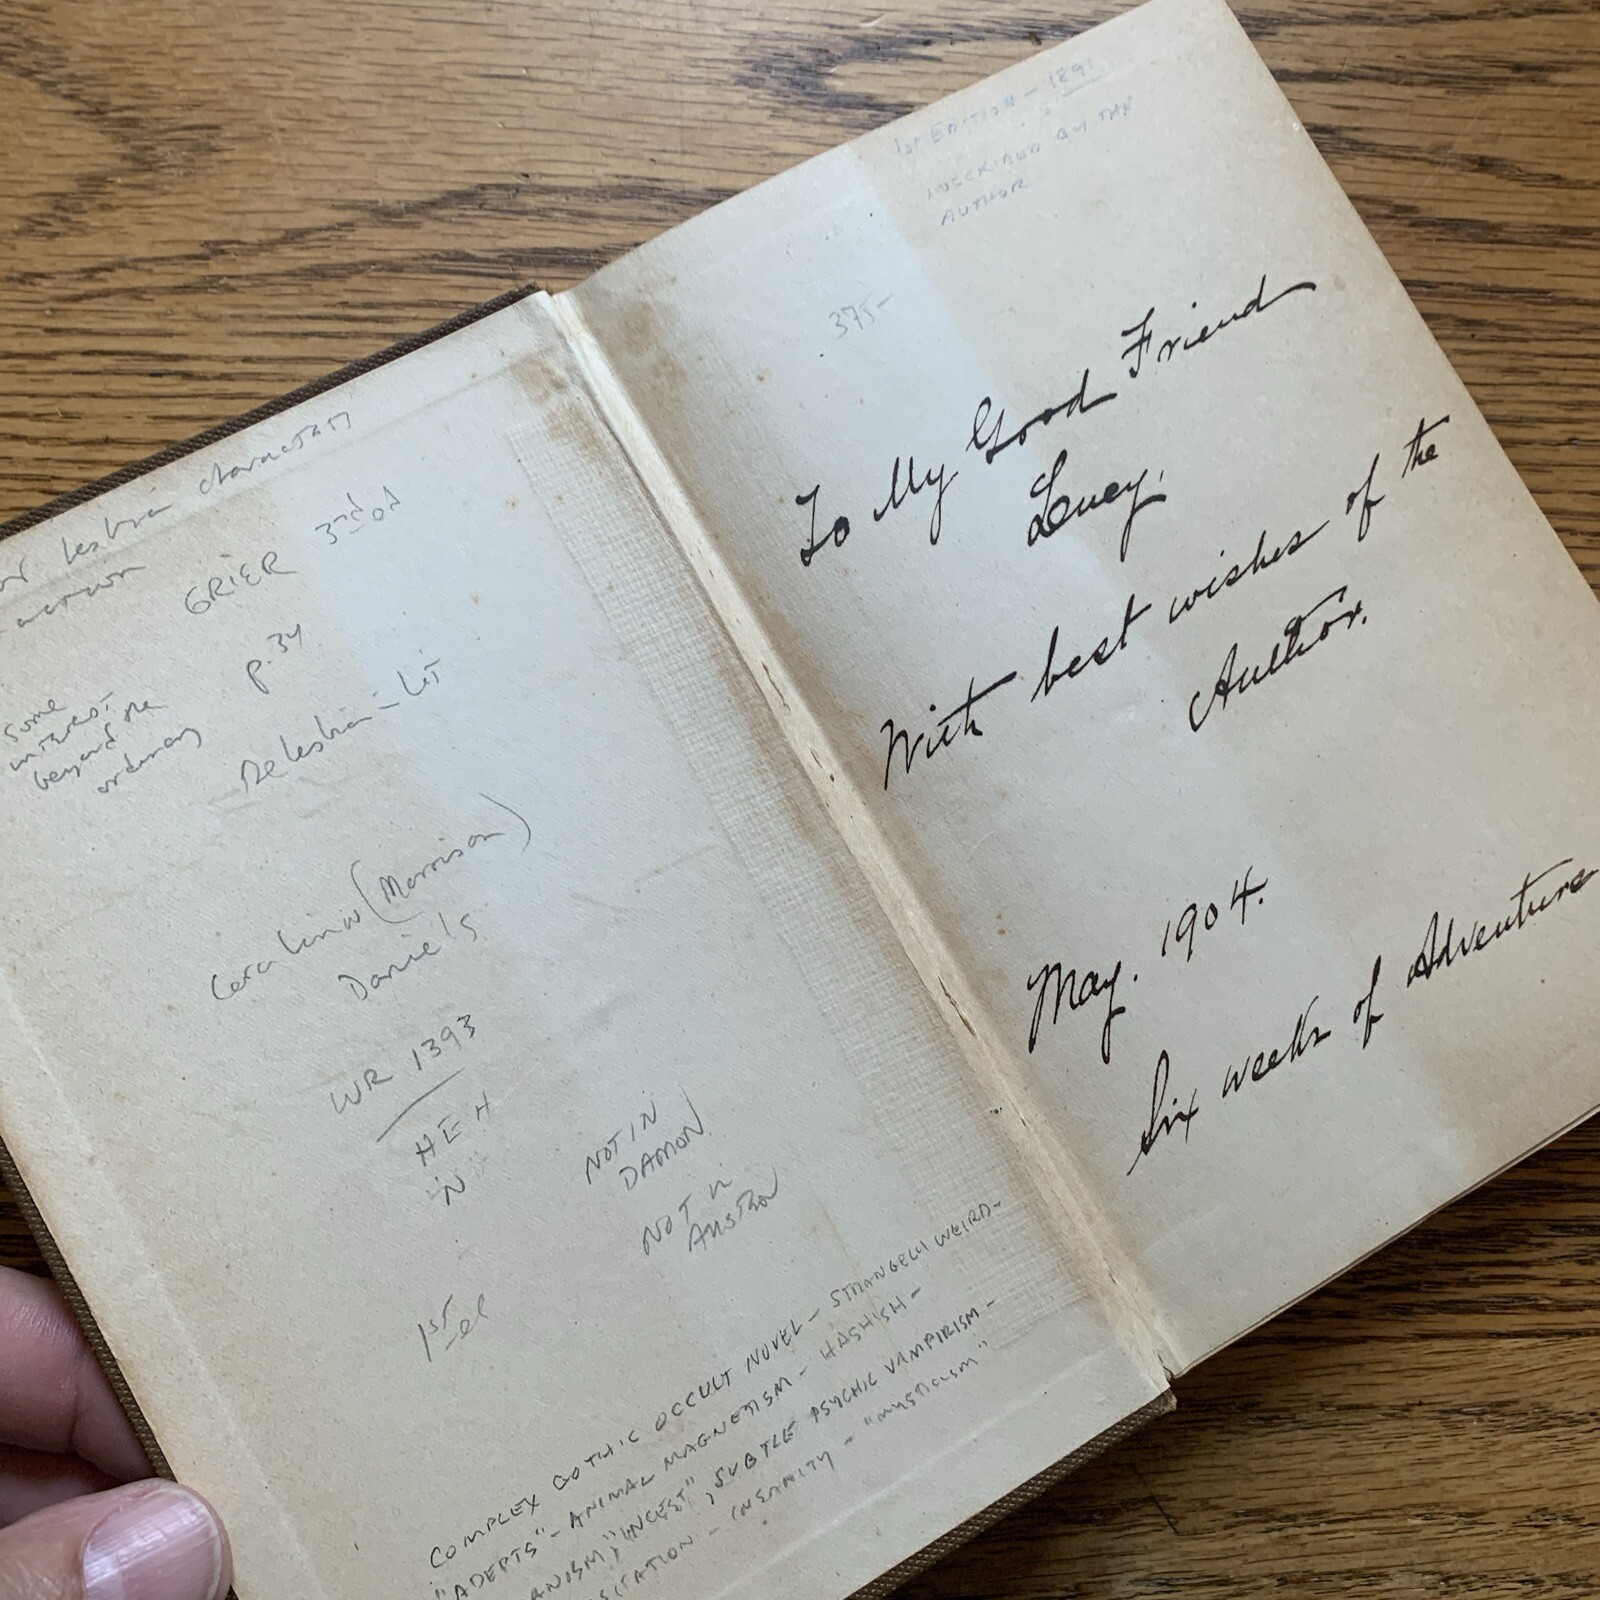 lesbian characters
GRIER 3rd ed
p. 34
some
interest
beyond the
ordinary
Lesbian-Lit
Cora Linn (Morrison)
Daniels
WR 1393
HEH
N
NOT IN
DAMON
NOT in
Austin
1st ed
COMPLEX GOTHIC OCCULT NOVEL - STRANGELY WEIRD -
"ADEPTS" - ANIMAL MAGNETISM - HASHISH -
"INCEST", SUBTLE PSYCHIC VAMPIRISM -
INSANITY - "MYSTICISM"
1st EDITION - 1891
INSCRIBED BY THE
AUTHOR
375-
To My Good Friend
Lucy,
With best wishes of the
Author.
May. 1904.
Six weeks of Adventure